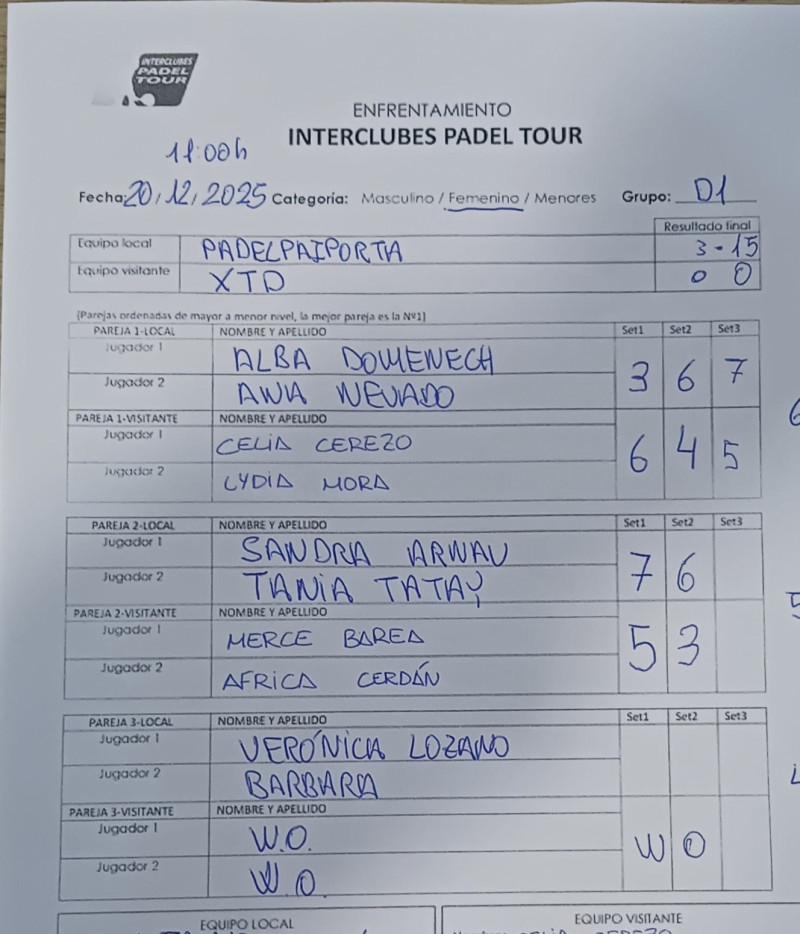 INTERCLUBES
PADEL
TOUR
ENFRENTAMIENTO
INTERCLUBES PADEL TOUR
11:00h
Fecha: 20/12/2025 Categoría: Masculino / Femenino / Menores Grupo: D1
Resultado final
Equipo local PADELPAIPORTA 3-15
Equipo visitante XTD 0 0
(Parejas ordenadas de mayor a menor nivel, la mejor pareja es la Nº1)
PAREJA 1-LOCAL NOMBRE Y APELLIDO Set1 Set2 Set3
Jugador 1 ALBA DOMENECH
Jugador 2 ANA NEVADO
3 6 7
PAREJA 1-VISITANTE NOMBRE Y APELLIDO
Jugador 1 CELIA CEREZO
Jugador 2 LYDIA MORA
6 4 5
PAREJA 2-LOCAL NOMBRE Y APELLIDO Set1 Set2 Set3
Jugador 1 SANDRA ARNAU
Jugador 2 TANIA TATAY
7 6
PAREJA 2-VISITANTE NOMBRE Y APELLIDO
Jugador 1 MERCE BAREA
Jugador 2 AFRICA CERDÁN
5 3
PAREJA 3-LOCAL NOMBRE Y APELLIDO Set1 Set2 Set3
Jugador 1 VERÓNICA LOZANO
Jugador 2 BARBARA
PAREJA 3-VISITANTE NOMBRE Y APELLIDO
Jugador 1 W.O.
Jugador 2 W.O.
W O
EQUIPO LOCAL EQUIPO VISITANTE